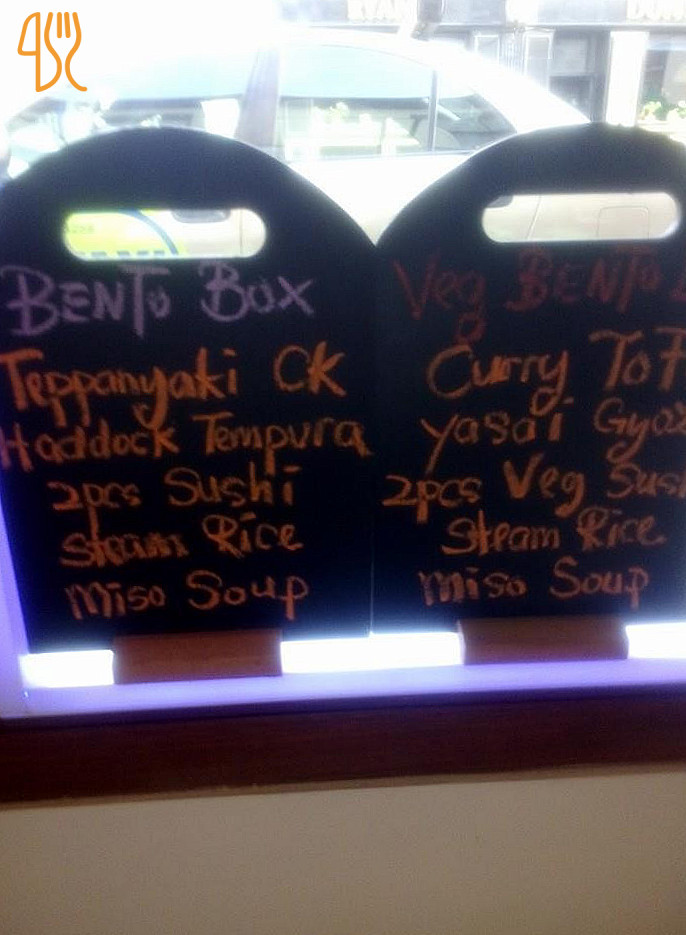 BENTO BOX
Teppanyaki CK
Haddock Tempura
2pcs Sushi
Steam Rice
Miso Soup
Veg BENTO
Curry ToF
yasai Gyoz
2pcs Veg Sush
Steam Rice
Miso Soup